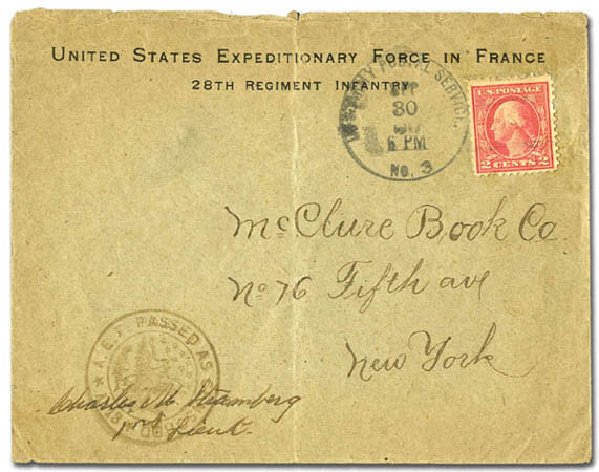 UNITED STATES EXPEDITIONARY FORCE IN FRANCE
28TH REGIMENT INFANTRY
POSTAL SERVICE.
30
PM
No. 3
U.S. POSTAGE
2 CENTS 2
McClure Book Co.
No 76 Fifth ave
New York
A.E.F. PASSED AS
Charles
1st Lieut.